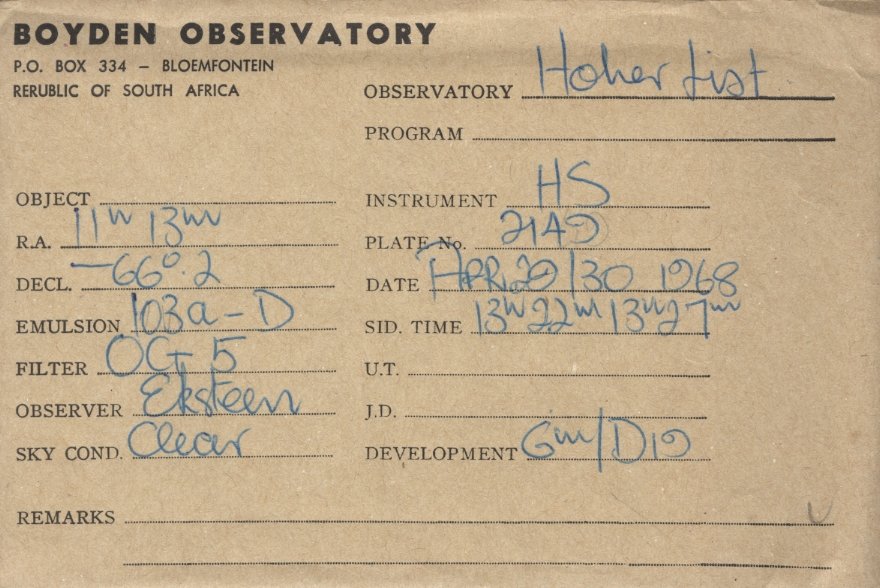 BOYDEN OBSERVATORY
P.O. BOX 334 – BLOEMFONTEIN
RERUBLIC OF SOUTH AFRICA
OBSERVATORY Hoher List
PROGRAM
OBJECT
INSTRUMENT HS
R.A. 11h 13m
PLATE No. 2149
DECL. –66°.2
DATE APR 29/30 1968
EMULSION 103a–D
SID. TIME 13h22m 13h27m
FILTER OG 5
U.T.
OBSERVER Eksteen
J.D.
SKY COND. Clear
DEVELOPMENT 6m/D19
REMARKS